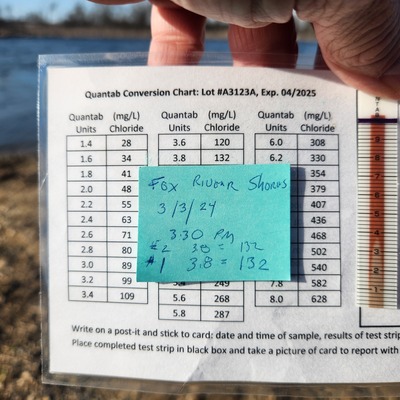 Quantab Conversion Chart: Lot #A3123A, Exp. 04/2025
Quantab Units (mg/L) Chloride Quantab Units (mg/L) Chloride Quantab Units (mg/L) Chloride
1.4 28 3.6 120 6.0 308
1.6 34 3.8 132 6.2 330
1.8 41 354
2.0 48 379
2.2 55 407
2.4 63 436
2.6 71 468
2.8 80 502
3.0 89 540
3.2 99 249 7.8 582
3.4 109 5.6 268 8.0 628
5.8 287
Fox River Shores
3/3/24
3:30 PM
#2 3.8 = 132
#1 3.8 = 132
Write on a post-it and stick to card: date and time of sample, results of test strip
Place completed test strip in black box and take a picture of card to report with